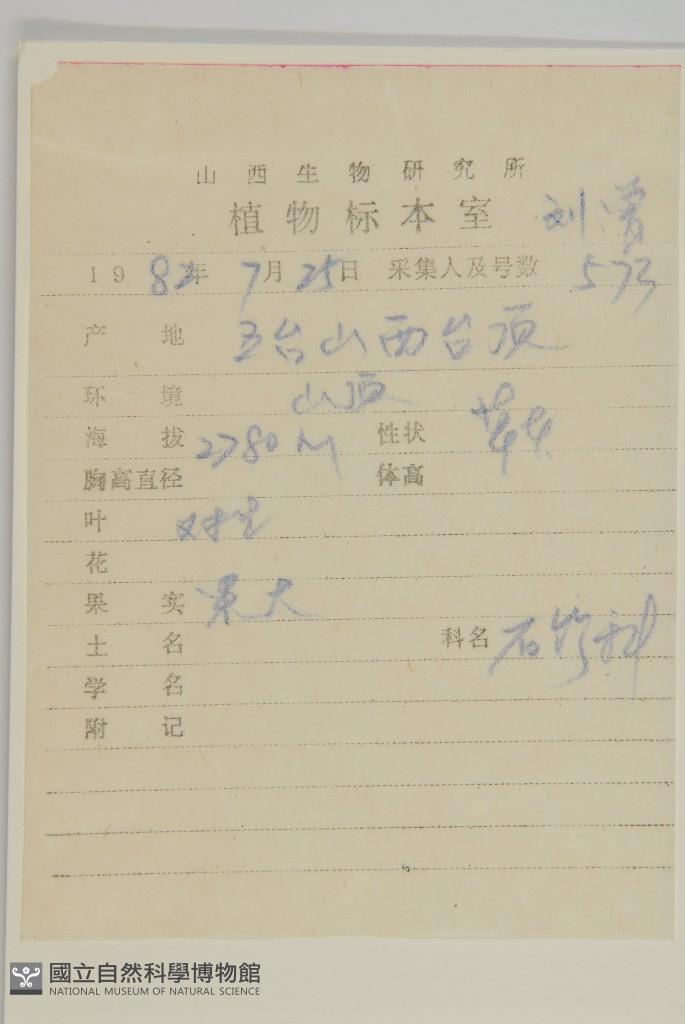 山西生物研究所
植物标本室 刘
1982年 7月25日 采集人及号数 573
产地 五台山西台顶
环境 山顶
海拔 2780M 性状 草本
胸高直径 体高
叶 对生
花
果实 果大
土名 科名 石竹科
学名
附记
國立自然科學博物館
NATIONAL MUSEUM OF NATURAL SCIENCE